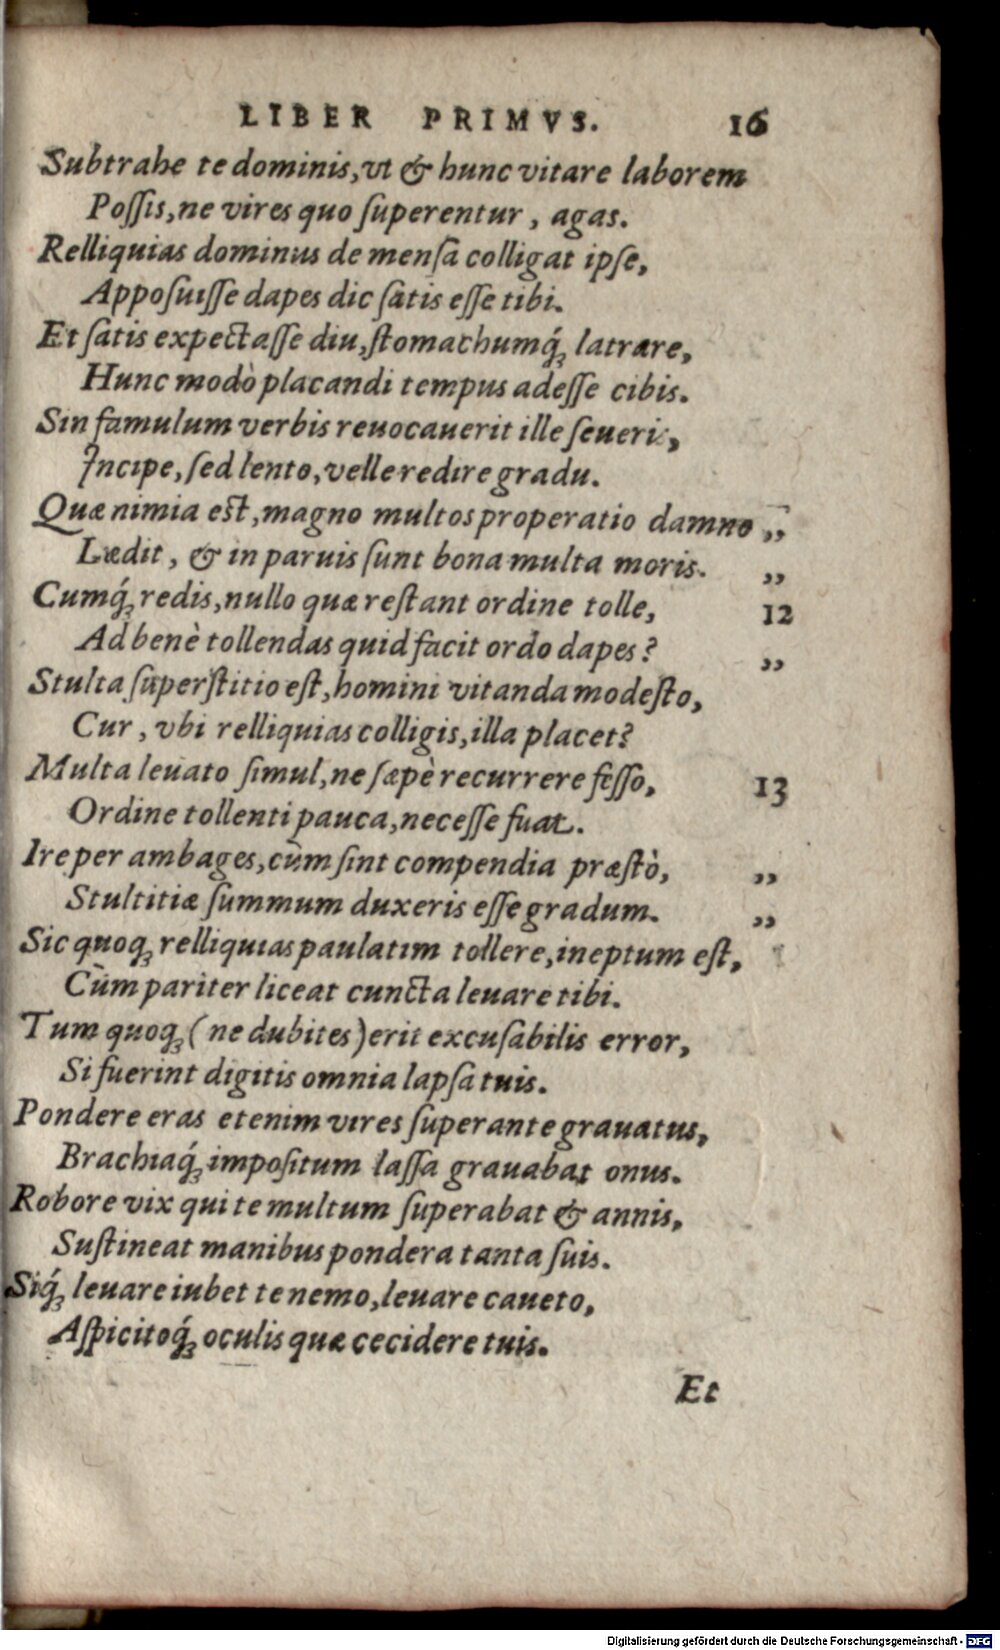 LIBER PRIMVS. 16
Subtrahe te dominis, vt & hunc vitare laborem
Poſſis, ne vires quo ſuperentur, agas.
Relliquias dominus de menſa colligat ipſe,
Appoſuiſſe dapes dic ſatis eſſe tibi.
Et ſatis expectaſſe diu, ſtomachumq́ꝫ latrare,
Hunc modò placandi tempus adeſſe cibis.
Sin famulum verbis reuocauerit ille ſeueris,
Incipe, ſed lento, velle redire gradu.
Quæ nimia eſt, magno multos properatio damno „
Lædit, & in paruis ſunt bona multa moris. „
Cumq́ꝫ redis, nullo quæ reſtant ordine tolle, 12
Ad benè tollendas quid facit ordo dapes? „
Stulta ſuperſtitio eſt, homini vitanda modeſto,
Cur, vbi relliquias colligis, illa placet?
Multa leuato ſimul, ne ſæpè recurrere feſſo, 13
Ordine tollenti pauca, neceſſe fuat.
Ire per ambages, cùm ſint compendia præſtò, „
Stultitiæ ſummum duxeris eſſe gradum. „
Sic quoqꝫ relliquias paulatim tollere, ineptum eſt,
Cùm pariter liceat cuncta leuare tibi.
Tum quoqꝫ (ne dubites) erit excuſabilis error,
Si fuerint digitis omnia lapſa tuis.
Pondere eras etenim vires ſuperante grauatus,
Brachiaq́ꝫ impoſitum laſſa grauabat onus.
Robore vix qui te multum ſuperabat & annis,
Suſtineat manibus pondera tanta ſuis.
Siq́ꝫ leuare iubet te nemo, leuare caueto,
Aſpicitoq́ꝫ oculis quæ cecidere tuis.
Et
Digitalisierung gefördert durch die Deutsche Forschungsgemeinschaft - DFG